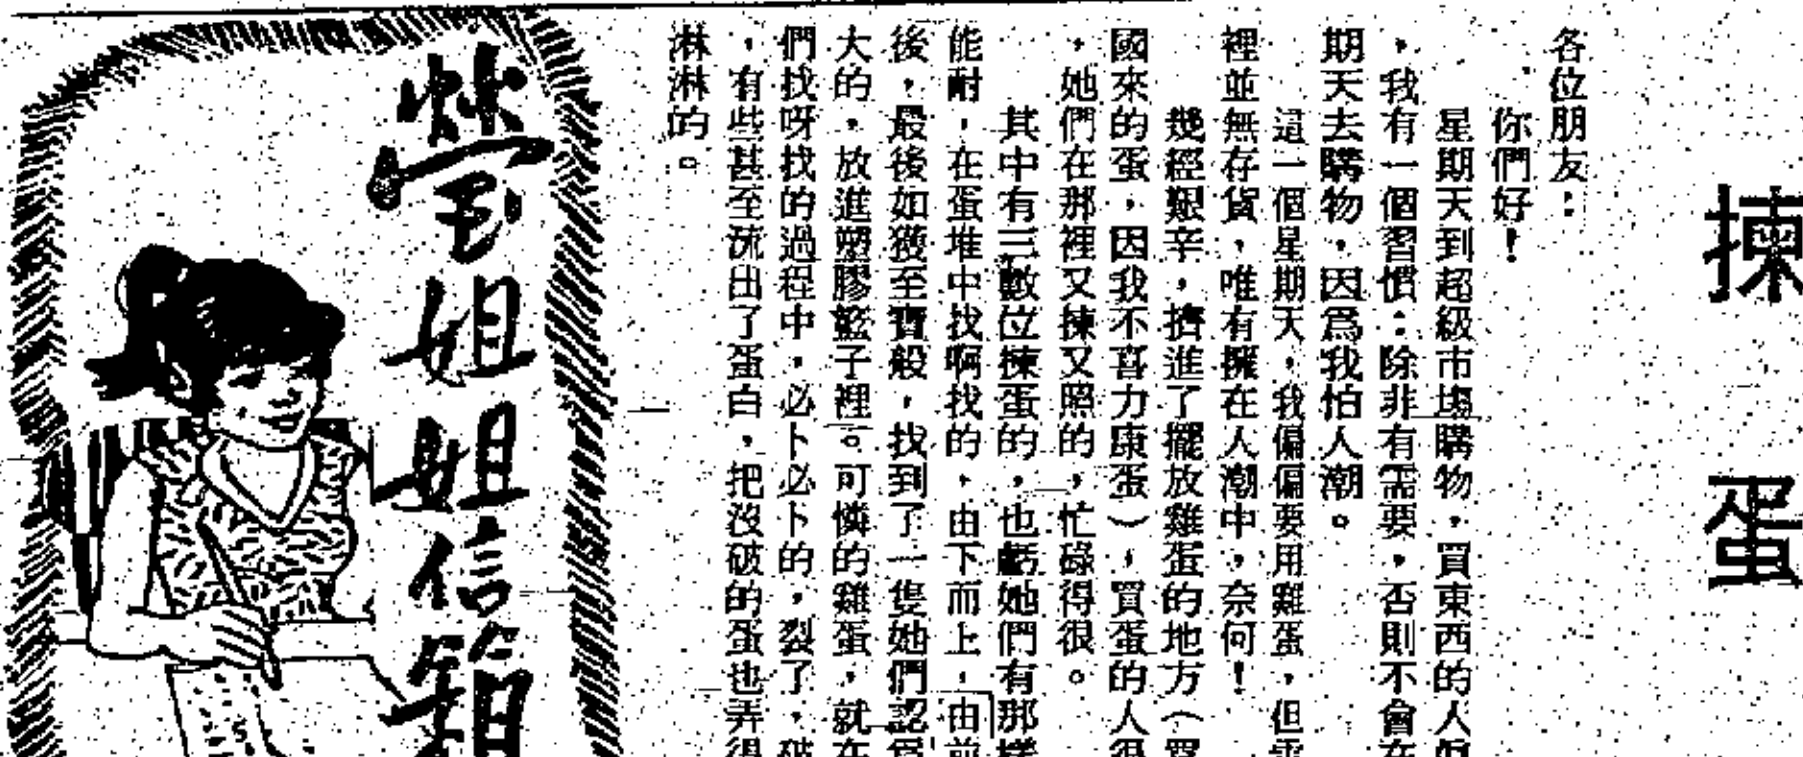 揀蛋
各位朋友:
你們好!
星期天到超級市場購物,買東西的人
,我有一個習慣:除非有需要,否則不會在
期天去購物,因為我怕人潮。
這一個星期天,我偏偏要用雞蛋,但
裡並無存貨,唯有擁在人潮中,奈何!
幾經艱辛,擠進了擺放雞蛋的地方(
國來的蛋,因我不喜力康蛋),買蛋的人很
,她們在那裡又揀又照的,忙碌得很。
其中有三數位揀蛋的,也虧她們有那樣
能耐,在蛋堆中找啊找的,由下而上,由前
後,最後如獲至寶般,找到了一隻她們認為
大的,放進塑膠籃子裡。可憐的雞蛋,就在
們找呀找的過程中,必卜必卜的,裂了,破
,有些甚至流出了蛋白,把沒破的蛋也弄得
淋淋的。
瑩姐姐信箱